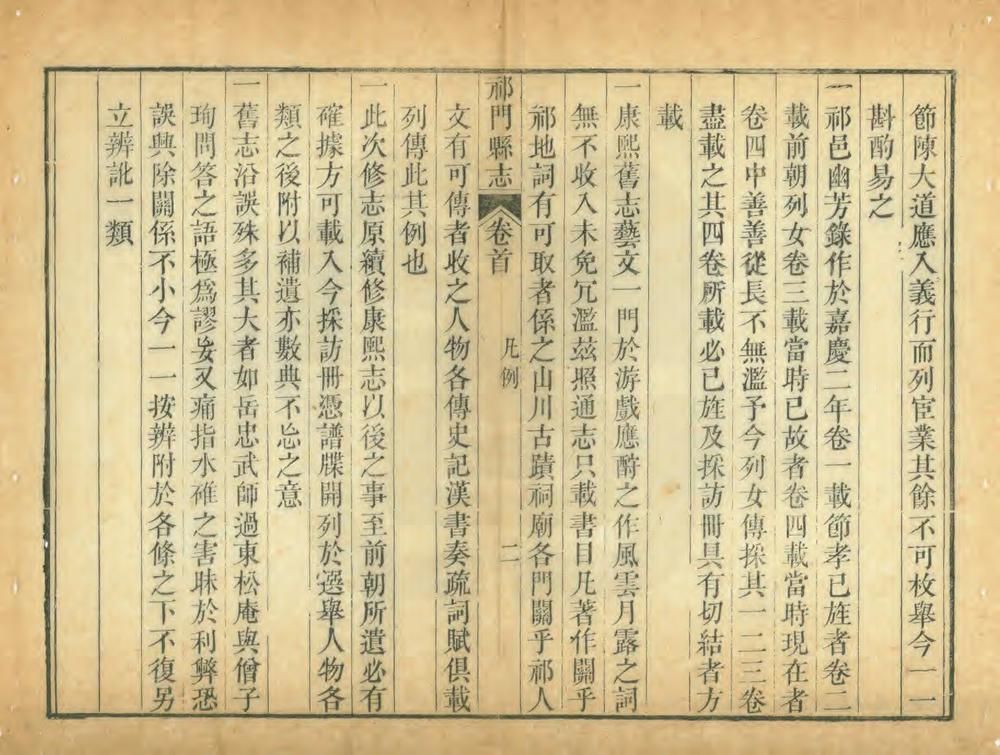 節陳大道應入義行而列宦業其餘不可枚舉今一一
斟酌易之
一祁邑幽芳錄作於嘉慶二年卷一載節孝已旌者卷二
載前朝列女卷三載當時已故者卷四載當時現在者
卷四中善善從長不無濫予今列女傳採其一二三卷
盡載之其四卷所載必已旌及採訪冊具有切結者方
載
一康熙舊志藝文一門於游戲應酧之作風雲月露之詞
無不收入未免冗濫茲照通志只載書目凡著作關乎
祁地詞有可取者係之山川古蹟祠廟各門關乎祁人
祁門縣志 卷首 凡例 二
文有可傳者收之人物各傳史記漢書奏疏詞賦俱載
列傳此其例也
一此次修志原續修康熙志以後之事至前朝所遺必有
確據方可載入今採訪冊憑譜牒開列於選舉人物各
類之後附以補遺亦數典不忘之意
一舊志沿誤殊多其大者如岳忠武師過東松庵與僧子
珣問答之語極爲謬妄又痛指水碓之害昧於利弊恐
誤興除關係不小今一一按辨附於各條之下不復另
立辨訛一類